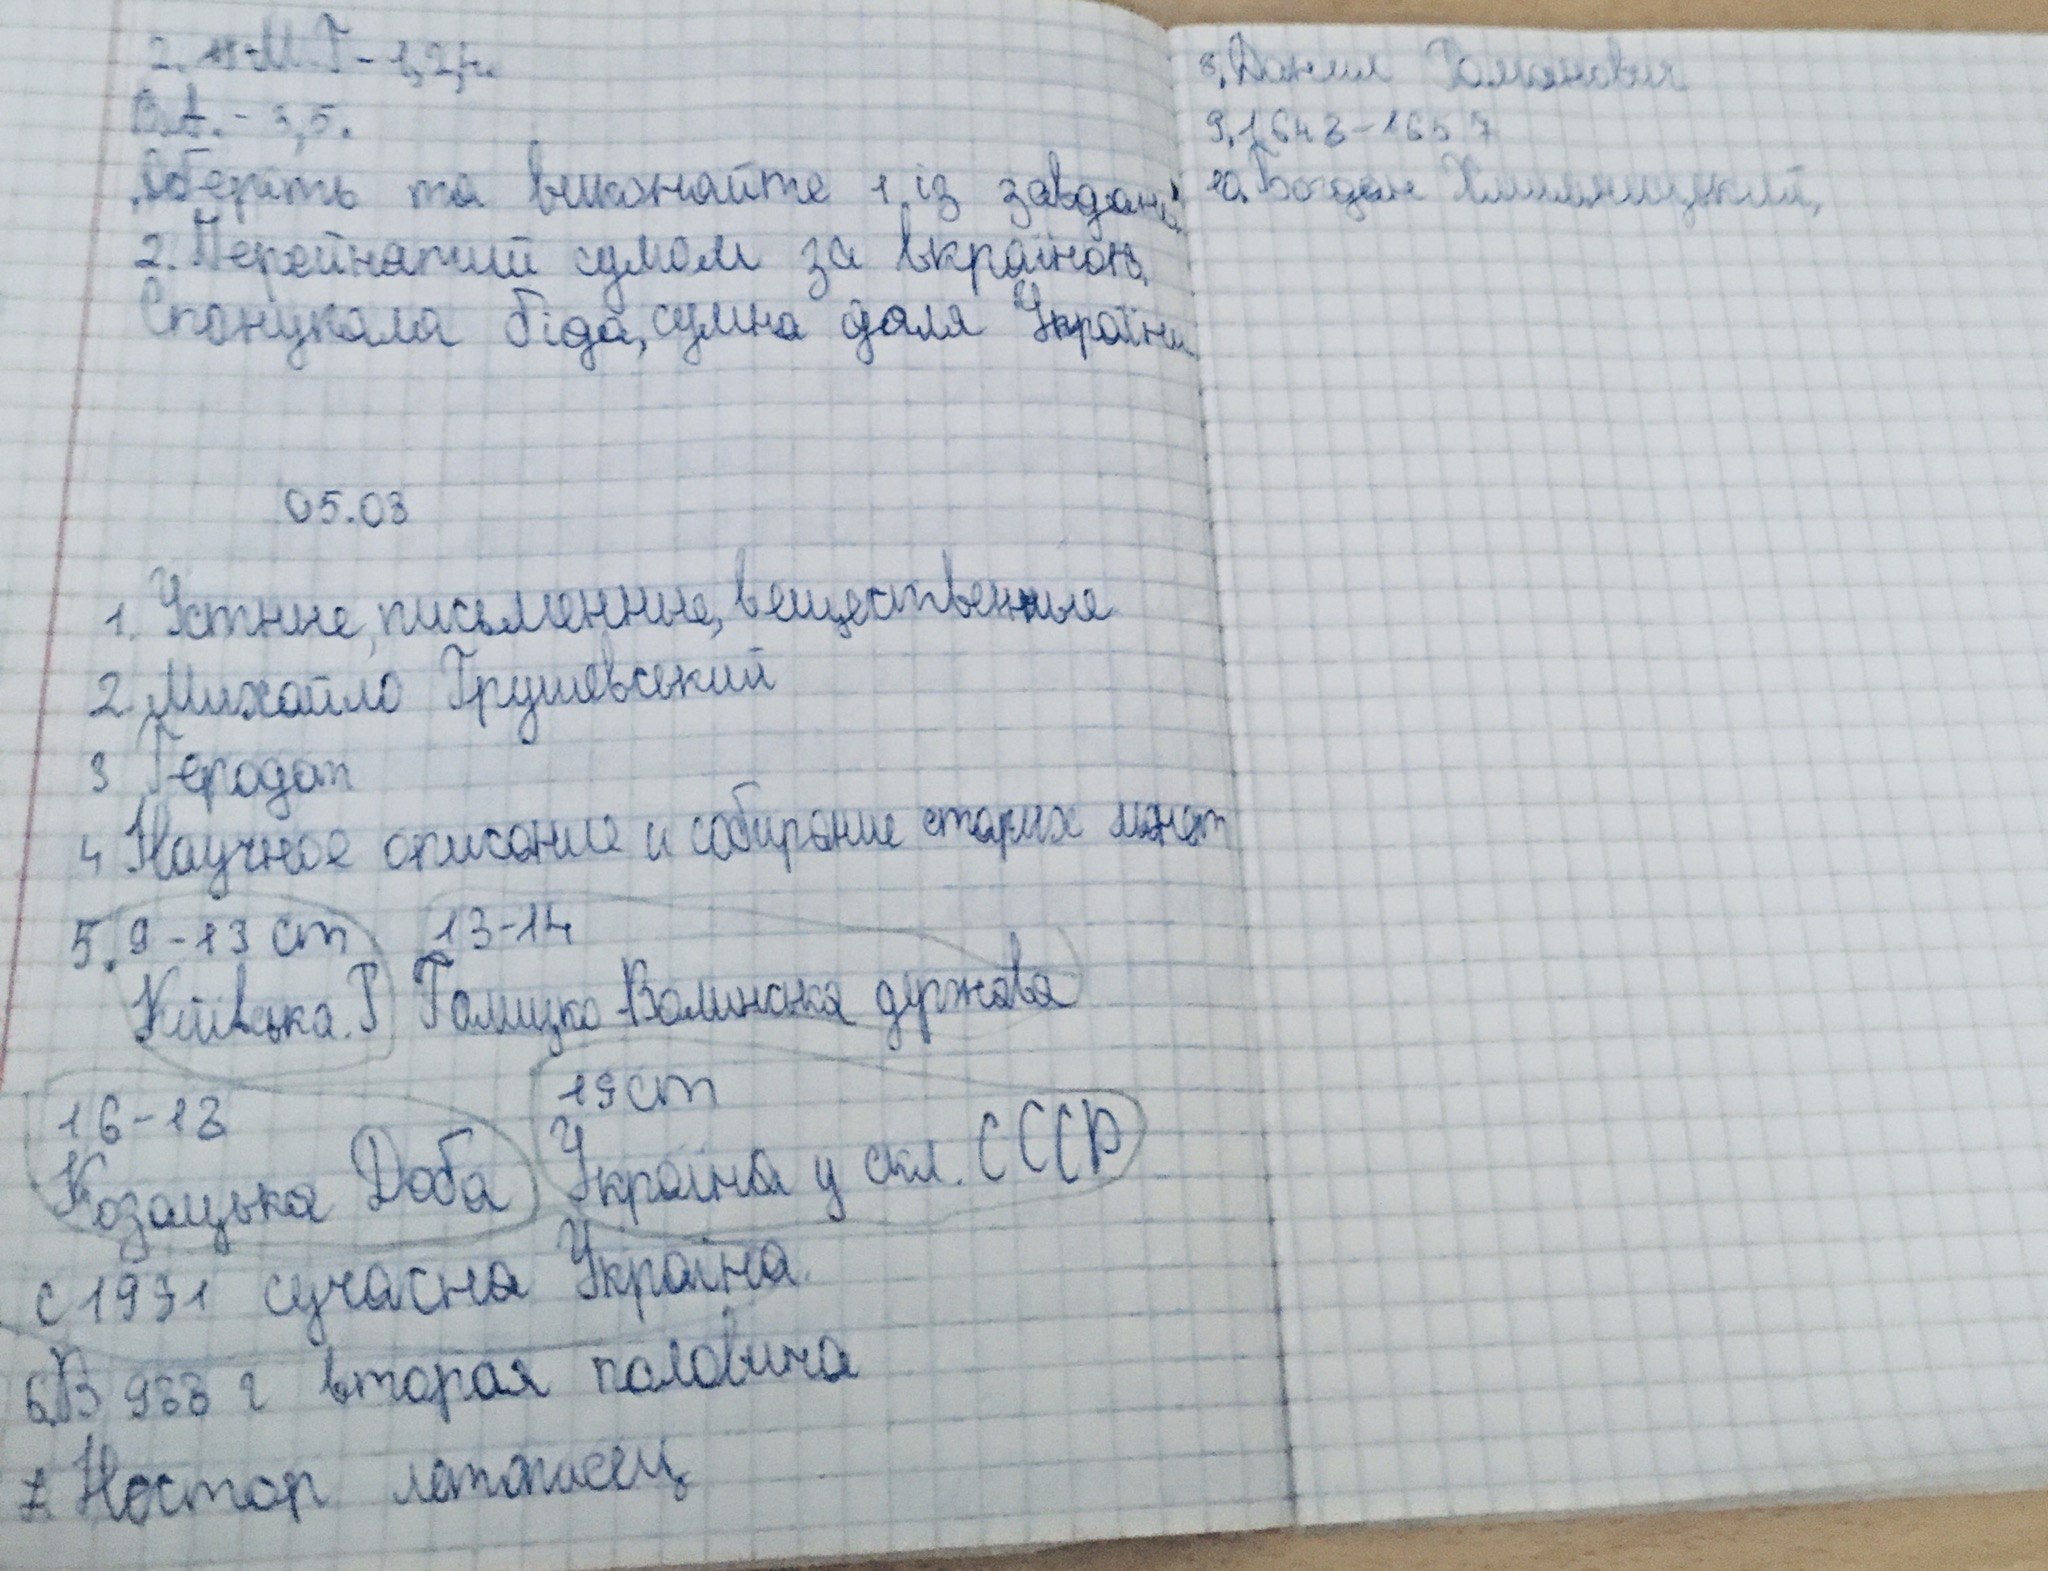 2. М.Г - 1,2,4.
В.А. - 3,5.
Оберіть та виконайте 1 із завдань
2. Перейнятий сумом за Україною,
Спонукала біда, сумна доля України
05.03
1. Устные, письменные, вещественные
2. Михайло Грушевський
3 Геродот
4 Научное описание и собирание старих монет
5. 9-13 ст 13-14
Київська. Р Галицко-Волинська держава
16-18
19 ст
Козацька Доба Україна у скл. СССР
с 1991 сучасна Україна.
6. В 988 г вторая половина
7. Нестор летописец
8. Данил Романович
9. 1648-1657
10. Богдан Хмильницький,